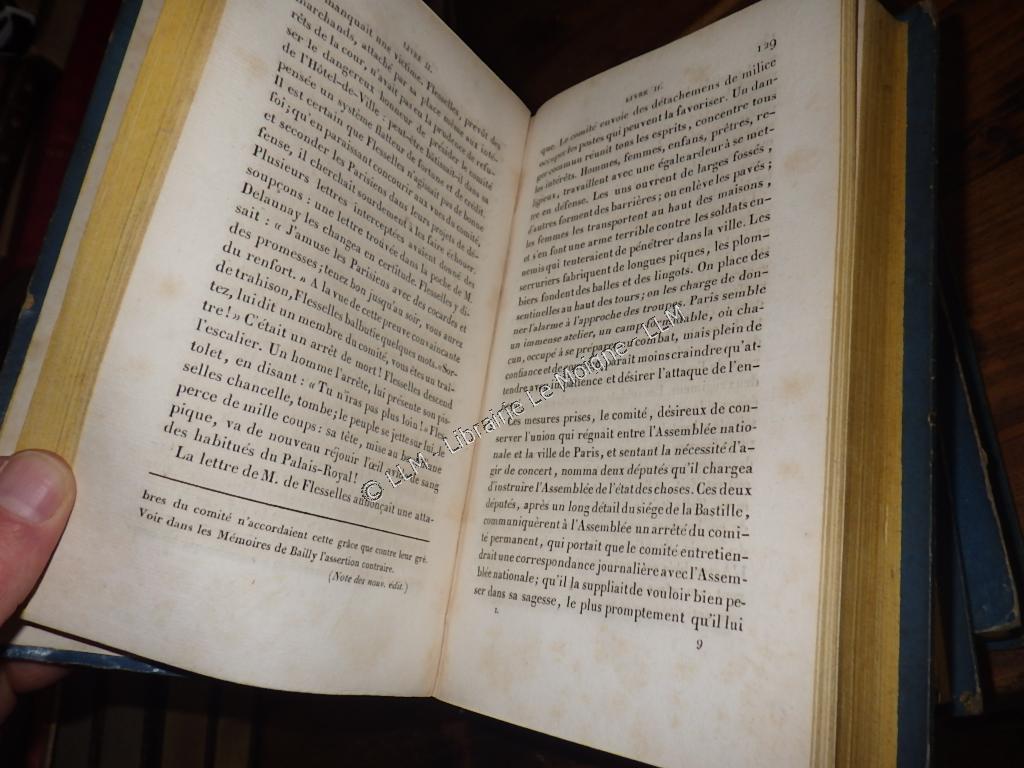 LIVRE II.
manquait une victime. Flesselles, prévôt des
marchands, attaché par sa place même aux inté-
rêts de la cour, n'avait pas eu la prudence de refu-
ser le dangereux honneur de présider le comité
de l'Hôtel-de-Ville : peut-être bâtissait-il dans sa
pensée un système flatteur de fortune et de crédit.
Il est certain que Flesselles n'agissait pas de bonne
foi; qu'en paraissant concourir aux vues du comité,
et seconder les Parisiens dans leurs projets de dé-
fense, il cherchait sourdement à les faire échouer.
Plusieurs lettres interceptées avaient donné des
soupçons : une lettre trouvée dans la poche de M.
Delaunay les changea en certitude. Flesselles y di-
sait : « J'amuse les Parisiens avec des cocardes et
des promesses; tenez bon jusqu'au soir, vous aurez
du renfort. » A la vue de cette preuve convaincante
de trahison, Flesselles balbutie quelques mots. « Sor-
tez, lui dit un membre du comité, vous êtes un traî-
tre! » C'était un arrêt de mort! Flesselles descend
l'escalier. Un homme l'arrête, lui présente son pis-
tolet, en disant : « Tu n'iras pas plus loin! » Fles-
selles chancelle, tombe; le peuple se jette sur lui, le
perce de mille coups : sa tête, mise au bout d'une
pique, va de nouveau réjouir l'œil de sang
des habitués du Palais-Royal!
La lettre de M. de Flesselles annonçait une atta-
bres du comité n'accordaient cette grâce que contre leur gré.
Voir dans les Mémoires de Bailly l'assertion contraire.
(Note des nouv. édit.)
LIVRE II. 129
que. Le comité envoie des détachemens de milice
occuper les postes qui peuvent la favoriser. Un dan-
ger commun réunit tous les esprits, concentre tous
les intérêts. Hommes, femmes, enfans, prêtres, re-
ligieux, travaillent avec une égale ardeur à se met-
tre en défense. Les uns ouvrent de larges fossés,
d'autres forment des barrières; on enlève les pavés;
les femmes les transportent au haut des maisons,
et s'en font une arme terrible contre les soldats en-
nemis qui tenteraient de pénétrer dans la ville. Les
serruriers fabriquent de longues piques, les plom-
biers fondent des balles et des lingots. On place des
sentinelles au haut des tours; on les charge de don-
ner l'alarme à l'approche des troupes. Paris semble
un immense atelier, un camp formidable, où cha-
cun, occupé à se préparer au combat, mais plein de
confiance et de paraît moins craindre qu'at-
tendre avec impatience et désirer l'attaque de l'en-
Ces mesures prises, le comité, désireux de con-
server l'union qui régnait entre l'Assemblée natio-
nale et la ville de Paris, et sentant la nécessité d'a-
gir de concert, nomma deux députés qu'il chargea
d'instruire l'Assemblée de l'état des choses. Ces deux
députés, après un long détail du siége de la Bastille,
communiquèrent à l'Assemblée un arrêté du comi-
té permanent, qui portait que le comité entretien-
drait une correspondance journalière avec l'Assem-
blée nationale; qu'il la suppliait de vouloir bien pe-
ser dans sa sagesse, le plus promptement qu'il lui
I. 9
© LLM - Librairie Le Moigne - LLM